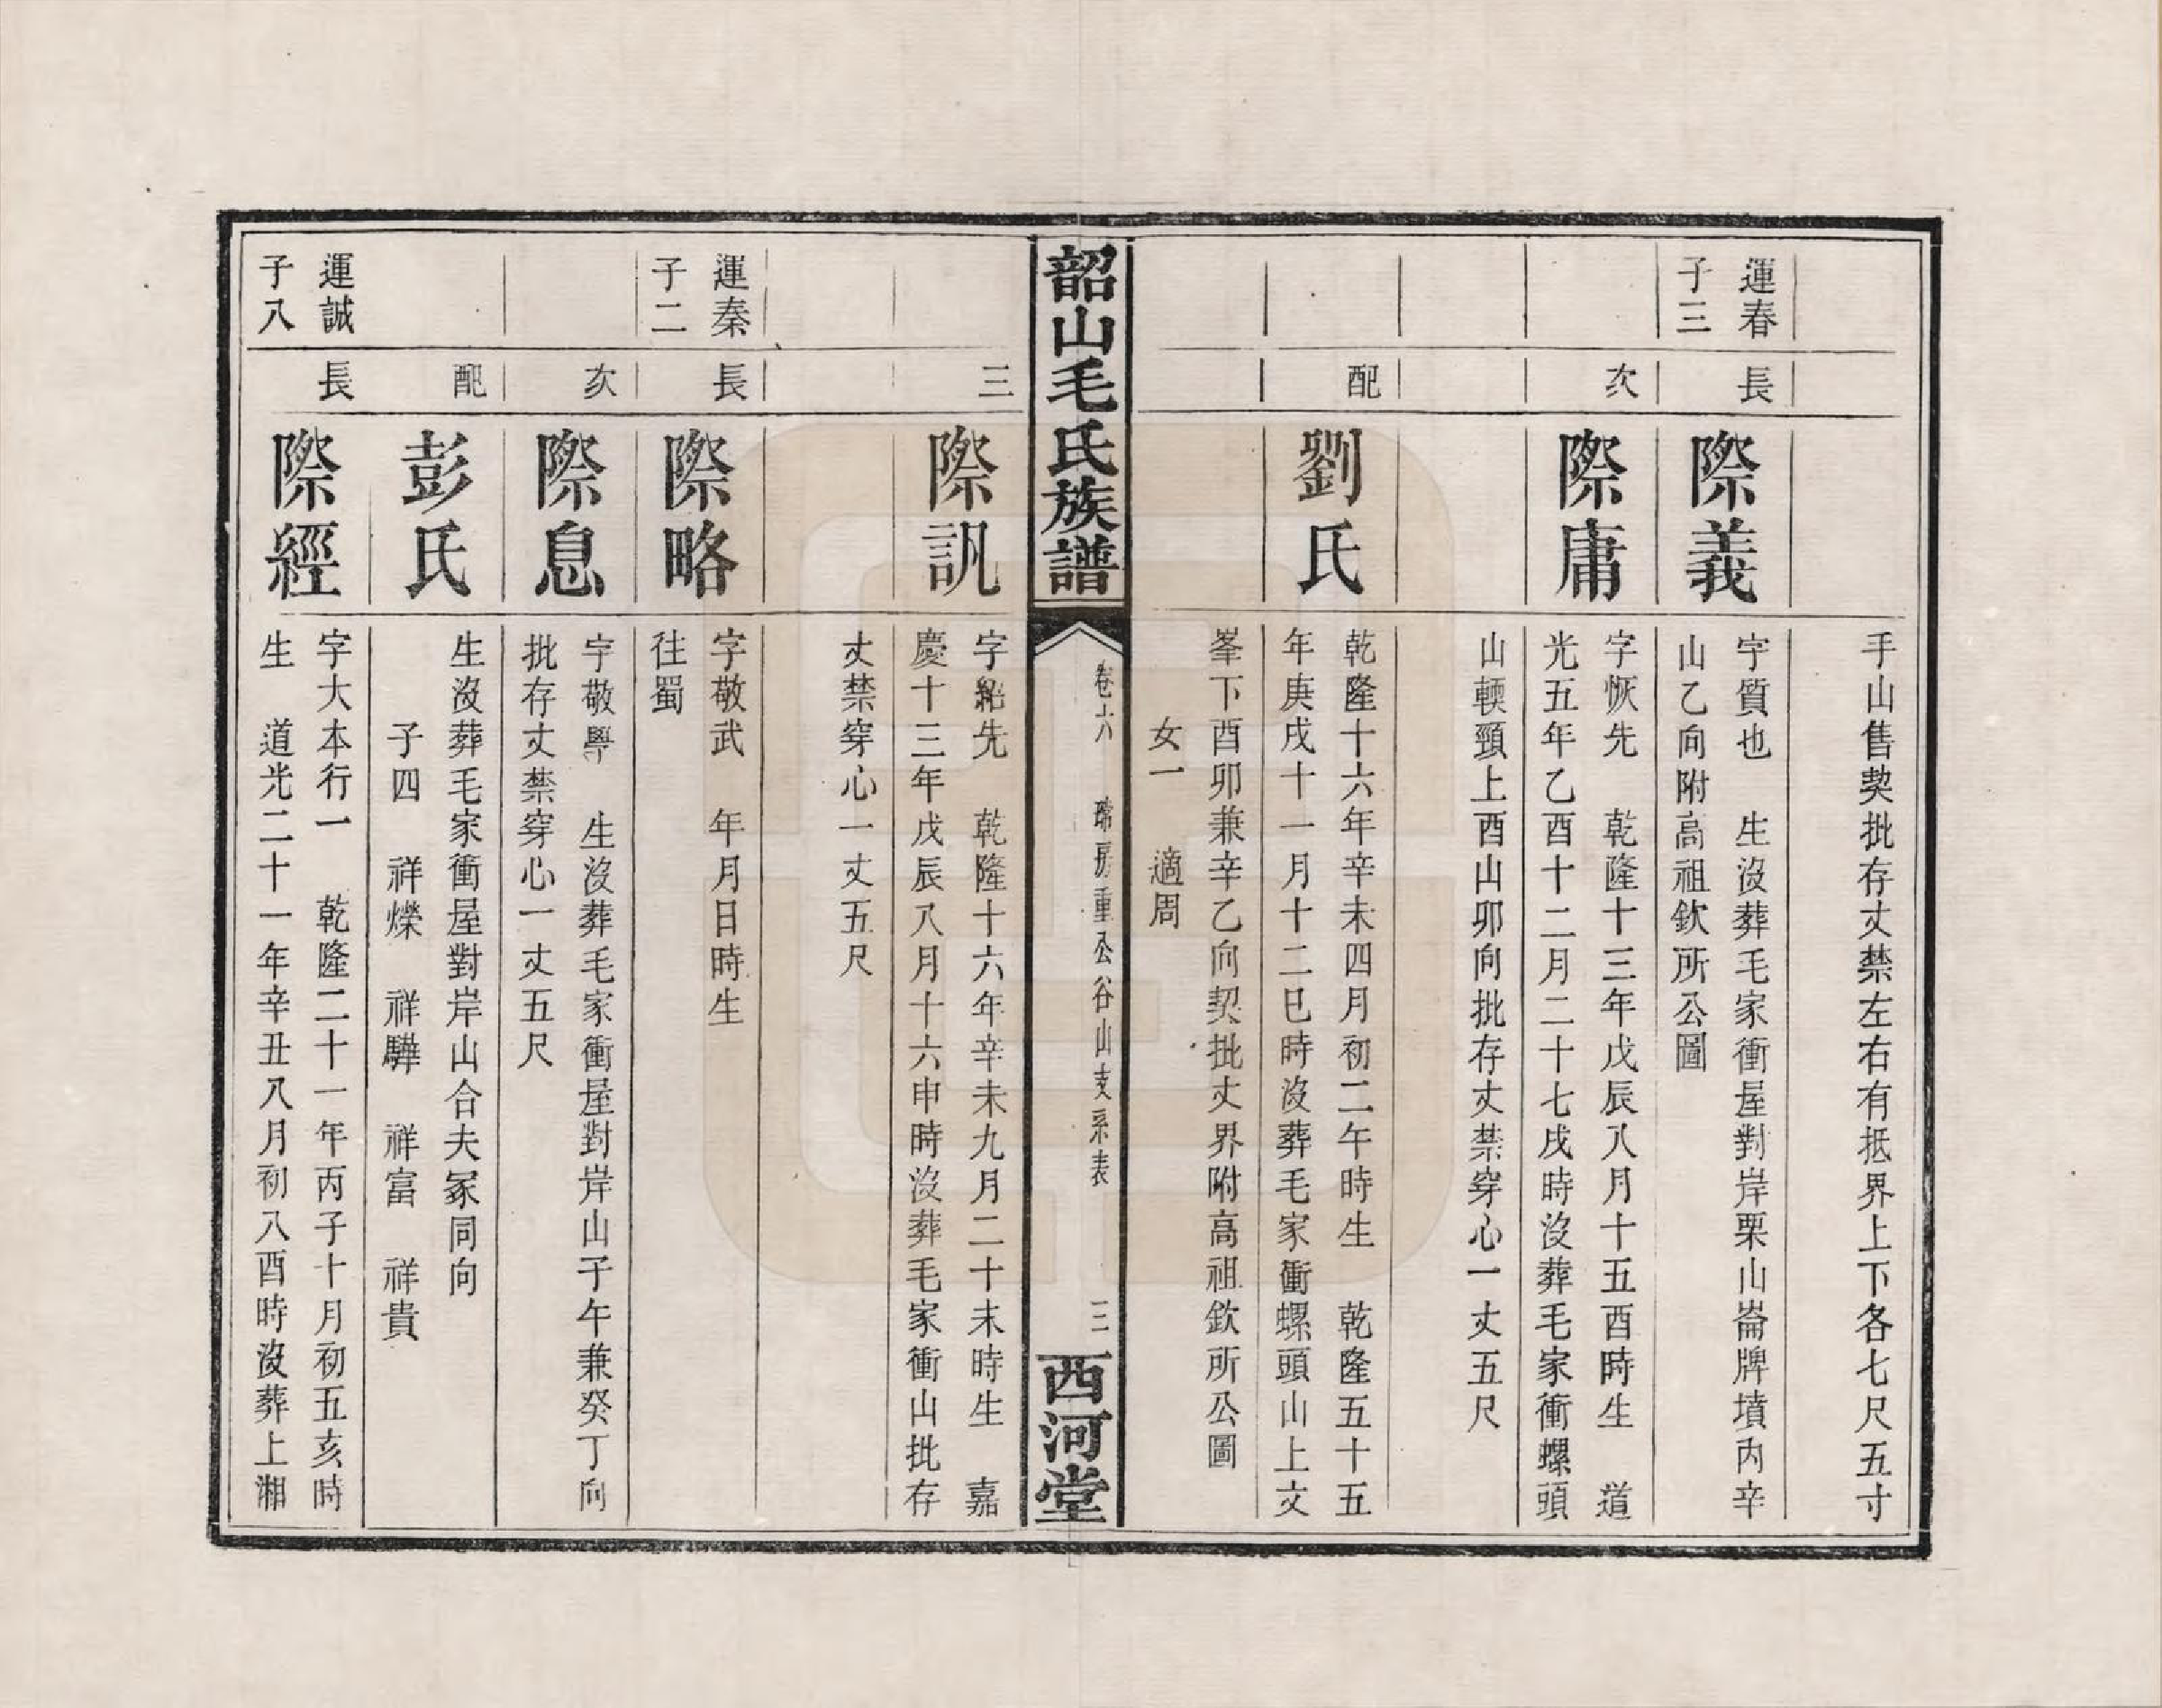 手山售契批存丈禁左右有抵界上下各七尺五寸
運春
子三
長
際義
字質也　生沒葬毛家衝屋對岸栗山崙牌墳內辛
山乙向附高祖欽所公圖
次
際庸
字恢先　乾隆十三年戊辰八月十五酉時生　道
光五年乙酉十二月二十七戌時沒葬毛家衝螺頭
山輭頸上酉山卯向批存丈禁穿心一丈五尺
配
劉氏
乾隆十六年辛未四月初二午時生　乾隆五十五
年庚戌十一月十二巳時沒葬毛家衝螺頭山上文
峯下酉卯兼辛乙向契批丈界附高祖欽所公圖
女一　適周
韶山毛氏族譜
卷六　瑞房重公谷山支系表
三
西河堂
三
際訊
字紹先　乾隆十六年辛未九月二十未時生　嘉
慶十三年戊辰八月十六申時沒葬毛家衝山批存
丈禁穿心一丈五尺
運秦
子二
長
際略
字敬武　年月日時生
往蜀
次
際息
字敬學　生沒葬毛家衝屋對岸山子午兼癸丁向
批存丈禁穿心一丈五尺
配
彭氏
生沒葬毛家衝屋對岸山合夫冢同向
子四　祥爍　祥驊　祥富　祥貴
運誠
子八
長
際經
字大本行一　乾隆二十一年丙子十月初五亥時
生　道光二十一年辛丑八月初八酉時沒葬上湘